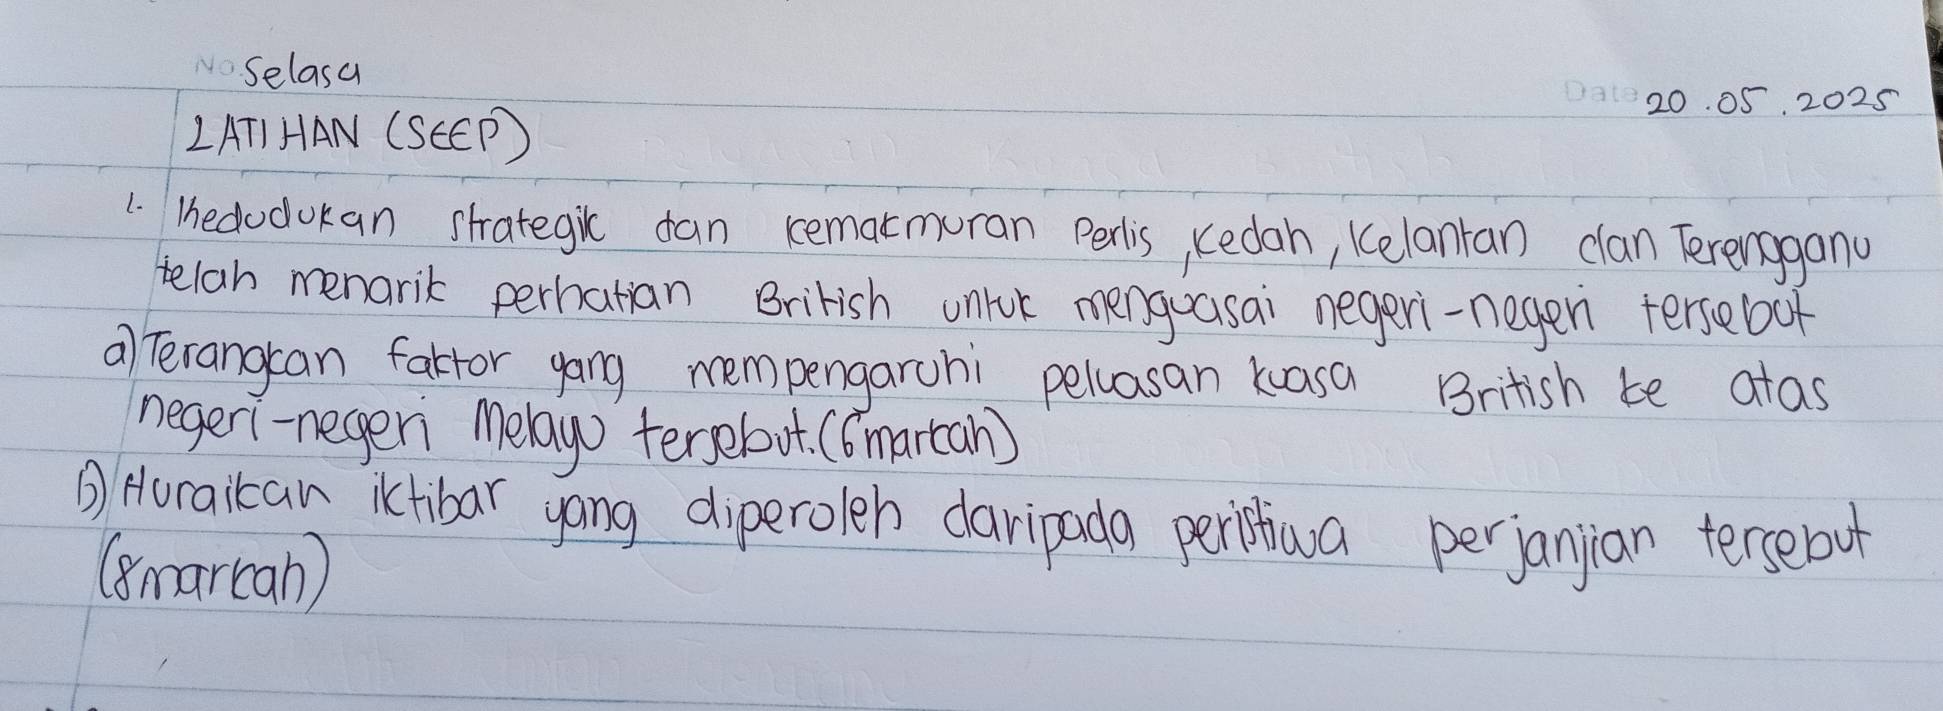 No. Selasa
Date 20.05.2025
LATIHAN (SEEP)
1. Kedudukan strategik dan kemakmuran Perlis, Kedah, Kelantan dan Terengganu
telah menarik perhatian British untuk menguasai negeri-negeri tersebut
a) Terangkan faktor yang mempengaruhi peluasan kuasa British ke atas
negeri-negeri Melayu tersebut. (6 markah)
b) Huraikan iktibar yang diperoleh daripada peristiwa perjanjian tersebut
(8 markah)